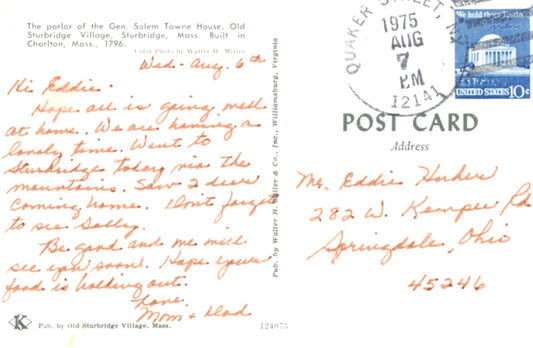 The parlor of the Gen. Salem Towne House, Old
Sturbridge Village, Sturbridge, Mass. Built in
Charlton, Mass., 1796.
Color Photo by Walter H. Miller
Wed- Aug. 6th
Hi Eddie-
Hope all is going well
at home. We are having a
lovely time. Went to
Sturbridge today via the
mountains. Saw 2 deer
coming home. Don't forget
to see Sally.
Be good and we will
see you soon. Hope your
food is holding out.
Love,
Mom & Dad
K
Pub. by Old Sturbridge Village, Mass.
124075
Pub. by Walter H. Miller & Co., Inc., Williamsburg, Virginia
QUAKER STREET, N.Y.
1975
AUG
7
PM
12141
We hold these Truths
UNITED STATES 10c
POST CARD
Address
Mr. Eddie
282 W. Kemper Rd
Springdale, Ohio
45246